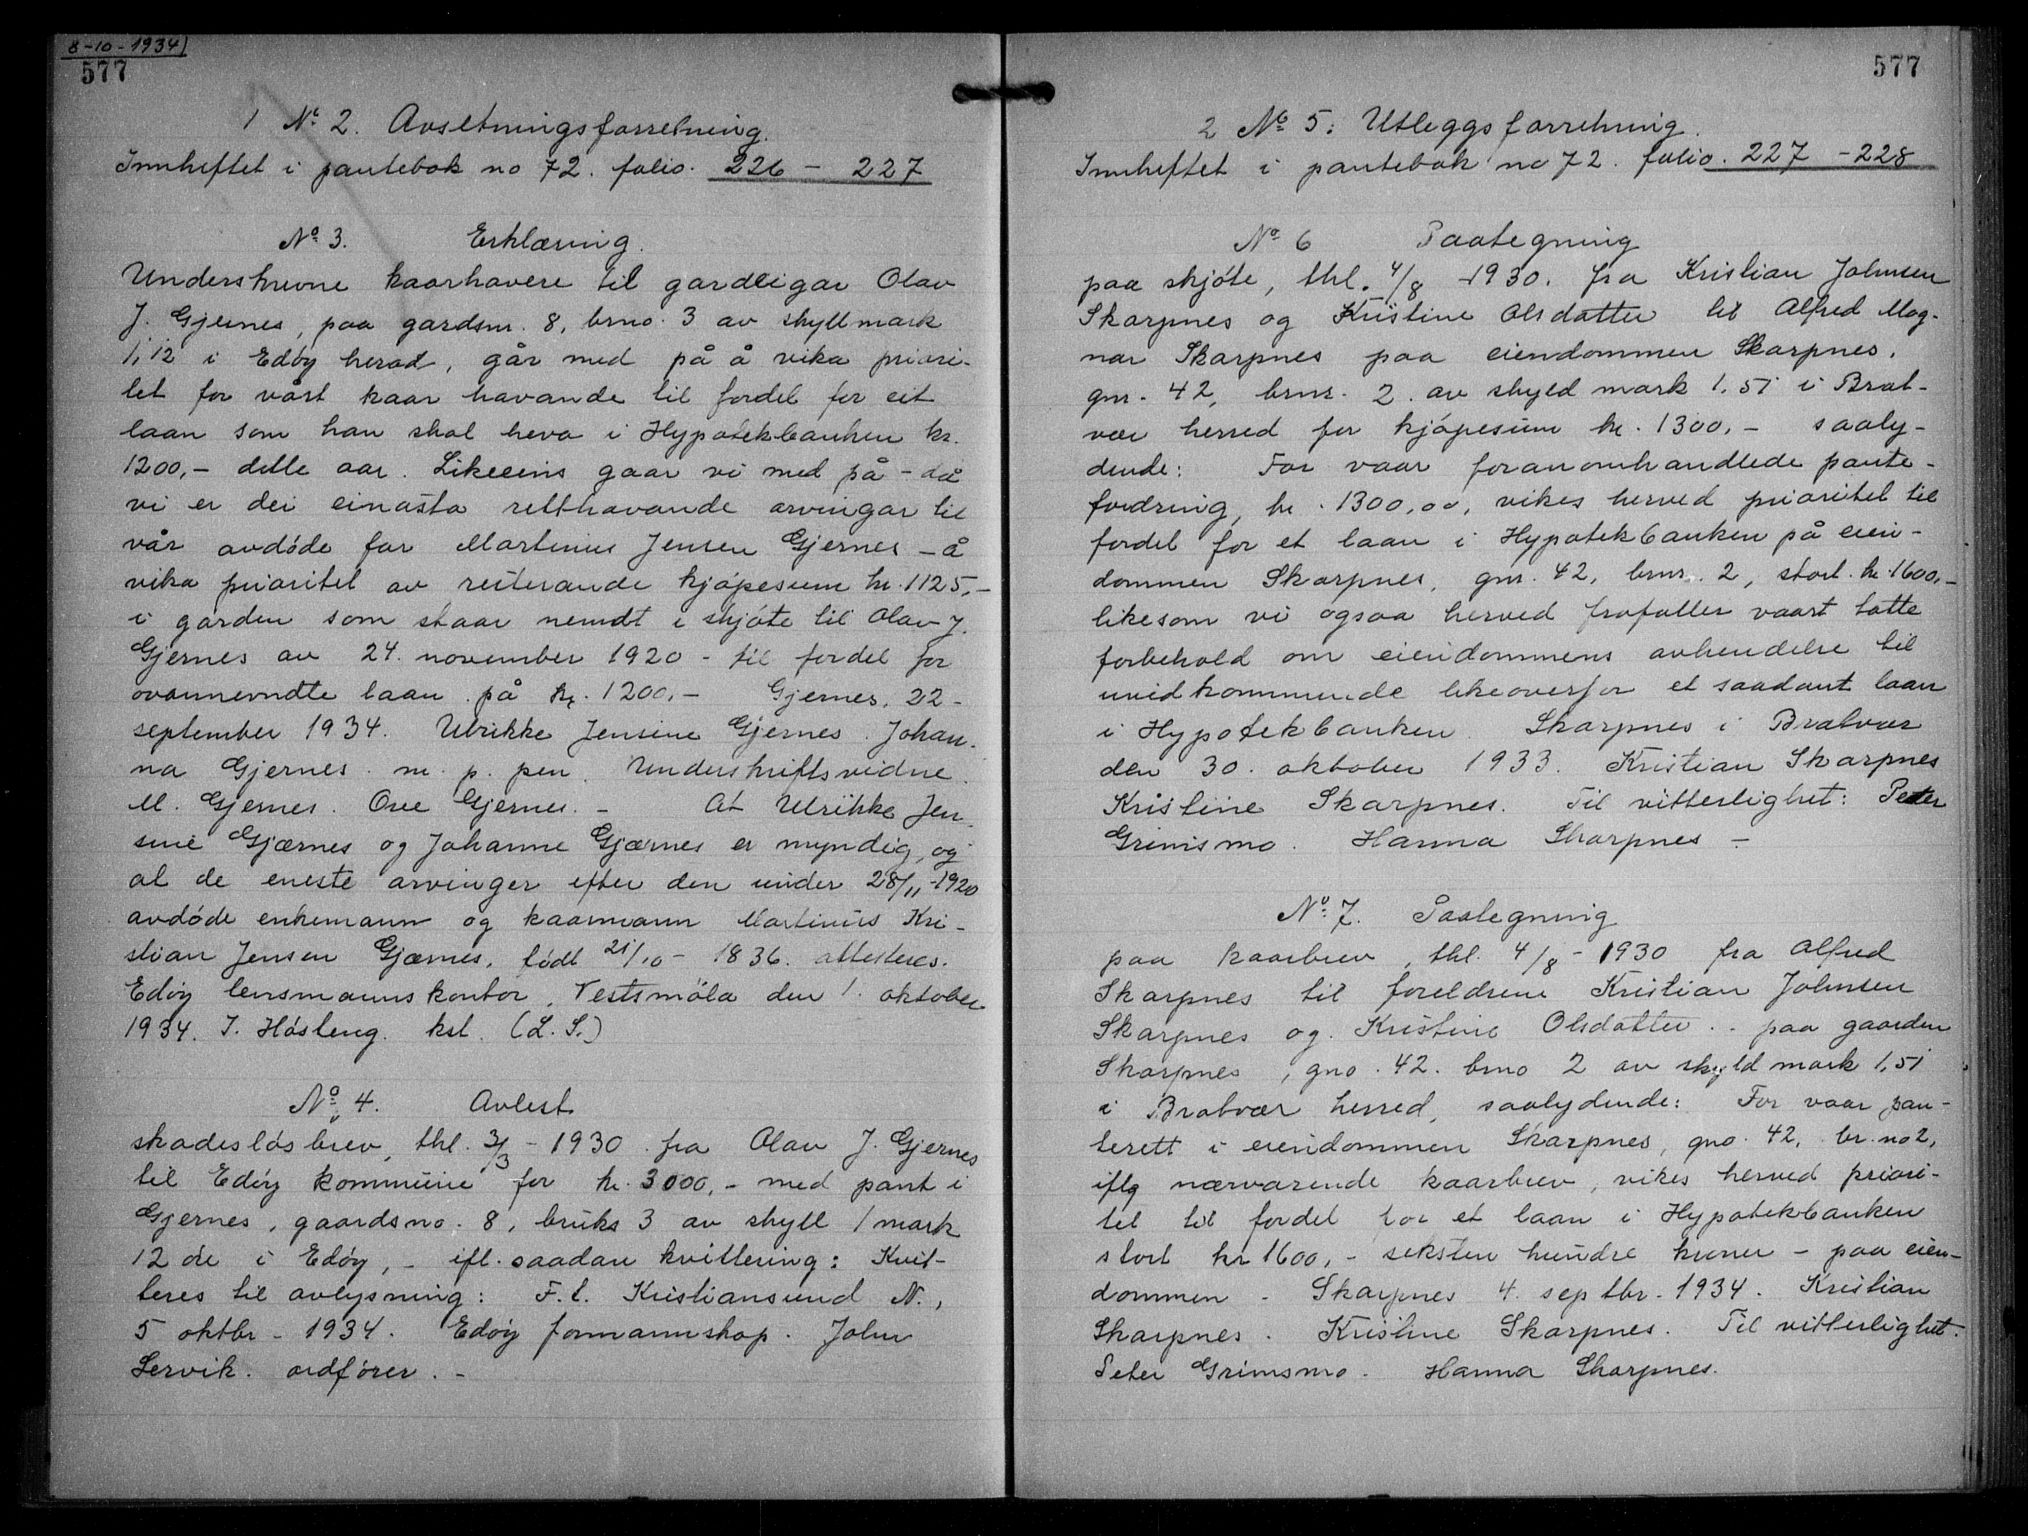 8-10-1934
577
1 No 2. Avsetningsforretning.
Innheftet i pantebok no 72. folio. 226 - 227
No 3. Erklæring.
Underskrevne kaarhavere til gardeigar Olav
J. Gjernes, paa gardsnr. 8, brno. 3 av skyllmark
1,12 i Edöy herad, går med på å vika priori-
tet for vårt kaar havande til fordel for eit
laan som han skal heva i Hypotekbanken kr.
1200,- dette aar. Likeeins gaar vi med på - då
vi er dei einasta retthavande arvingar til
vår avdöde far Martinus Jensen Gjernes - å
vika prioritet av resterande kjöpesum kr. 1125,-
i garden som staar nemdt i skjöte til Olav J.
Gjernes av 24. november 1920 - til fordel for
ovannemdte laan på kr. 1200,- Gjernes, 22-
september 1934. Ulrikke Jensine Gjernes. Johan-
na Gjernes. m. p. pen. Underskriftsvidne
M. Gjernes. Ove Gjernes. - At Ulrikke Jen-
sine Gjærnes og Johanne Gjærnes er myndig, og
at de eneste arvinger efter den under 28/11-1920
avdöde enkemann og kaarmann Martinus Kri-
stian Jensen Gjærnes, födt 21/10 - 1836. attesteres.
Edöy lensmannskontor, Vestsmöla den 1. oktober
1934. J. Hösteng. kst. (L. S.)
No 4. Avlest
skadeslösbrev, thl. 3/3 - 1930 fra Olav J. Gjernes
til Edöy kommune for kr. 3000,- med pant i
Gjernes, gaardsno. 8, bruks 3 av skyll 1 mark
12 öre i Edöy, - ifl. saadan kvittering: Kvit-
teres til avlysning: F. t. Kristiansund N.,
5 oktbr - 1934. Edöy formannskap. John
Servik. ordförer. -
577
2 No 5: Utleggsforretning.
Innheftet i pantebok no 72. folio. 227 - 228
No 6 Paategning
paa skjöte, thl. 4/8 - 1930. fra Kristian Johnsen
Skarpnes og Kristine Olsdatter til Alfred Mag-
nar Skarpnes paa eiendommen Skarpnes.
gnr. 42, brnr. 2. av skyld mark 1.51 i Brat-
vær herred for kjöpesum kr. 1300,- saaly-
dende: For vaar foranomhandlede pante-
fordring, kr. 1300,00, vikes herved prioritet til
fordel for et laan i Hypotekbanken på eien-
dommen Skarpnes, gnr. 42, brnr. 2, stort. kr. 1600,-
likesom vi ogsaa herved frafaller vaart tatte
forbehold om eiendommens avhendelse til
uvidkommende likeoverfor et saadant laan
i Hypotekbanken. Skarpnes i Bratvær
den 30. oktober 1933. Kristian Skarpnes
Kristine Skarpnes. Til vitterlighet: Peter
Grimsmo. Hanna Skarpnes -
No 7. Paategning
paa kaarbrev, thl. 4/8 - 1930 fra Alfred
Skarpnes til foreldrene Kristian Johnsen
Skarpnes og. Kristine Olsdatter. - paa gaarden
Skarpnes, gno. 42. brno 2 av skyld mark 1,51
i Bratvær herred, saalydende: For vaar pan-
terett i eiendommen Skarpnes, gno. 42, br. no 2,
iflg nærværende kaarbrev, vikes herved priori-
tet til fordel for et laan i Hypotekbanken
stort kr 1600,- seksten hundre kroner - paa eien-
dommen - Skarpnes 4. septbr. 1934. Kristian
Skarpnes. Kristine Skarpnes. Til vitterlighet.
Peter Grimsmo. Hanna Skarpnes.